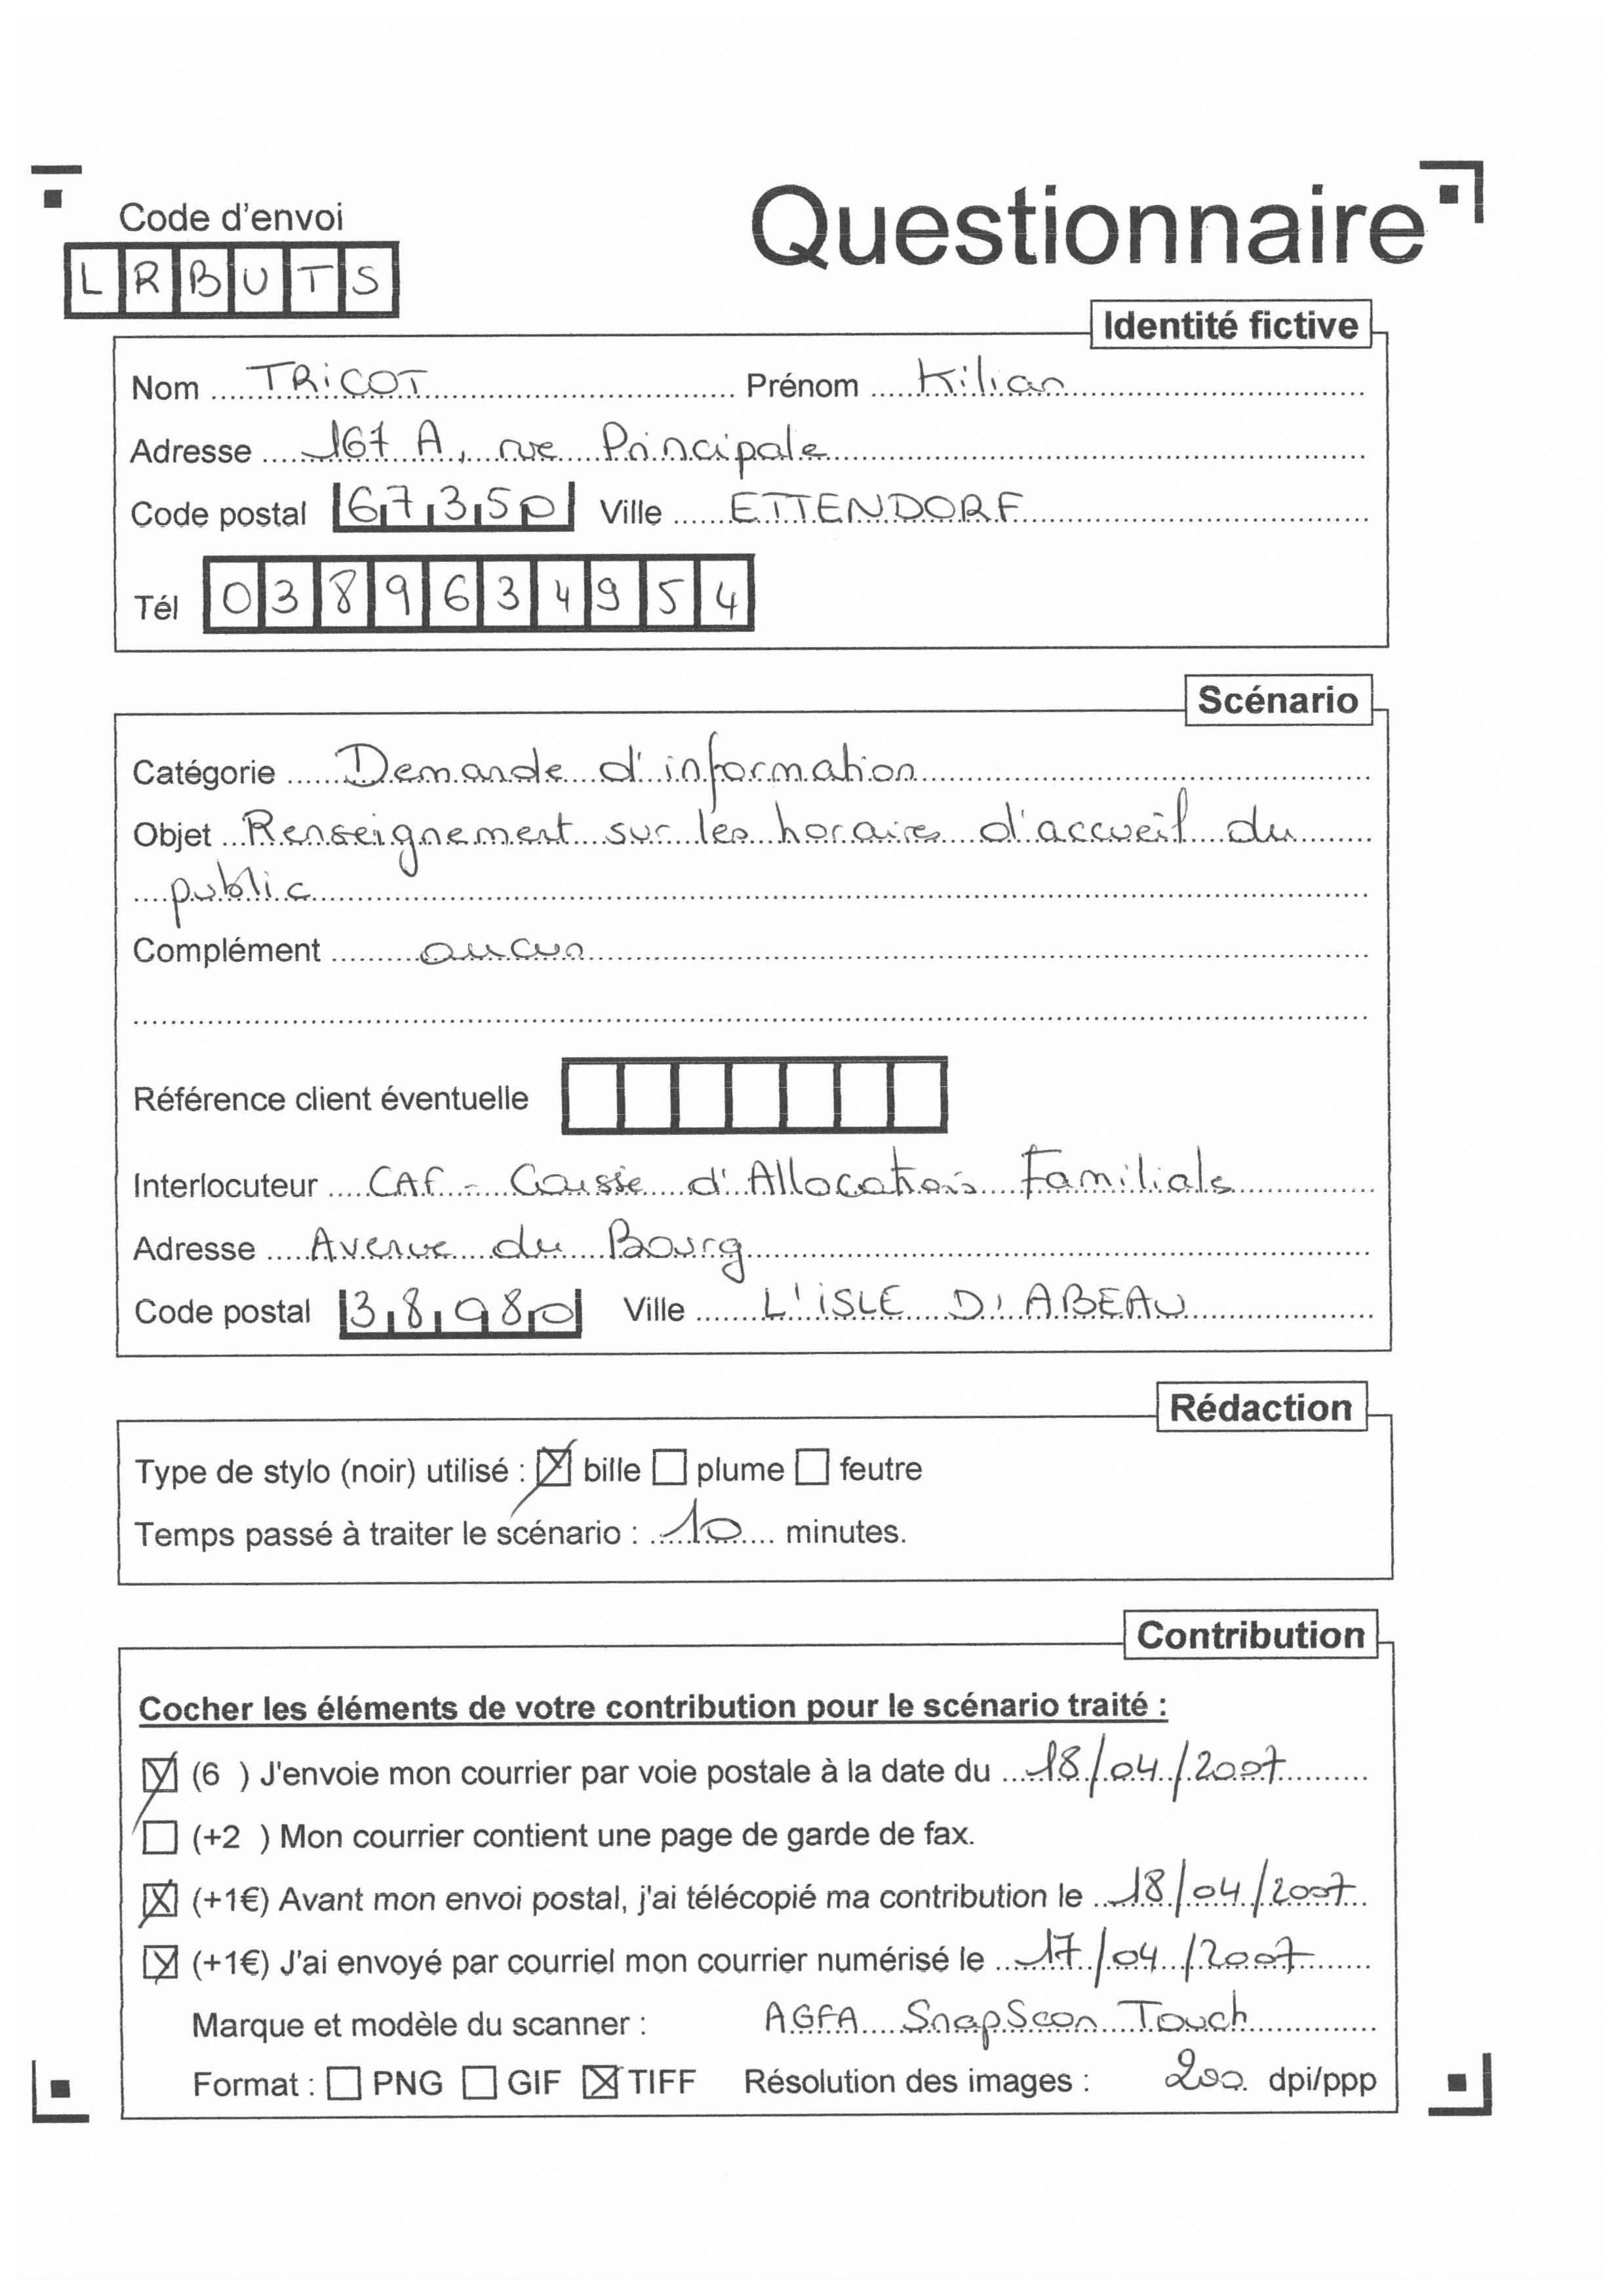 Questionnaire
Code d'envoi
LRBUTS
Identité fictive
Nom TRICOT Prénom Kilian
Adresse 167 A, rue Principale
Code postal 67350 Ville ETTENDORF
Tél 0389634954
Scénario
Catégorie Demande d'information
Objet Renseignement sur les horaires d'accueil du
public
Complément aucun
Référence client éventuelle
Interlocuteur CAF - Caisse d'Allocations Familiales
Adresse Avenue du Bourg
Code postal 38080 Ville L'ISLE D'ABEAU
Rédaction
Type de stylo (noir) utilisé : ☒ bille ☐ plume ☐ feutre
Temps passé à traiter le scénario : 10 minutes.
Contribution
Cocher les éléments de votre contribution pour le scénario traité :
☒ (6 ) J'envoie mon courrier par voie postale à la date du 18/04/2007
☐ (+2 ) Mon courrier contient une page de garde de fax.
☒ (+1€) Avant mon envoi postal, j'ai télécopié ma contribution le 18/04/2007
☒ (+1€) J'ai envoyé par courriel mon courrier numérisé le 17/04/2007
Marque et modèle du scanner : AGFA SnapScan Touch
Format : ☐ PNG ☐ GIF ☒ TIFF Résolution des images : 200 dpi/ppp